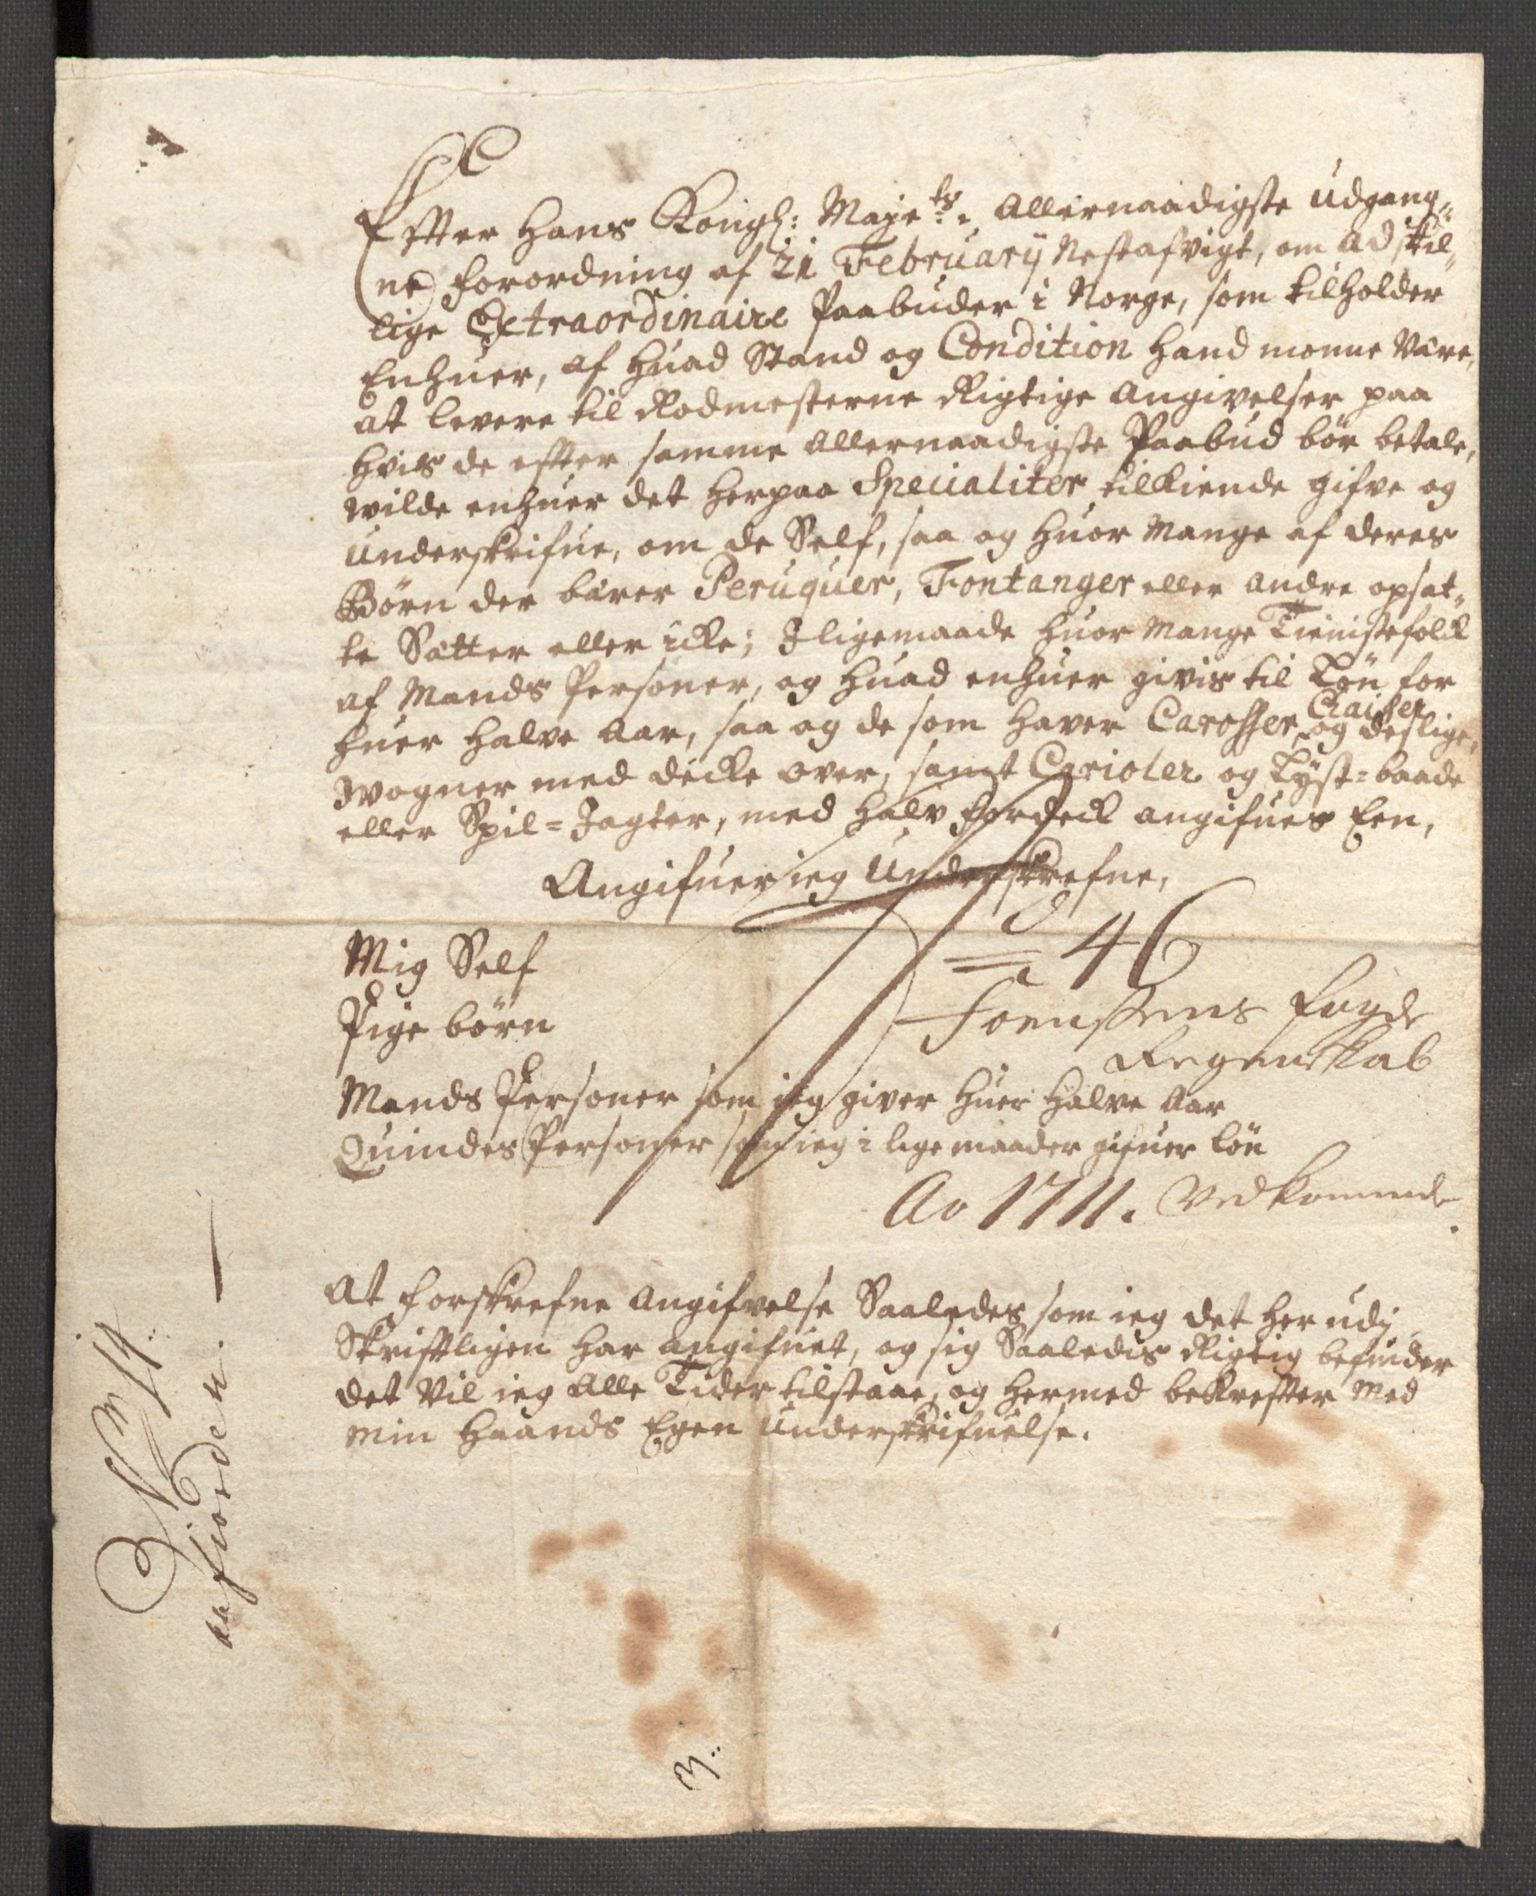 Effter Hans Kongl: Majets. Allernaadigste udgang-
ne forordning af 21 February Nestafvigt, om adskil-
lige Extraordinaire Paabuder i Norge, som tilholder
Enhuer, af huad Stand og Condition hand monne Være,
at levere til Rodmesterne Rigtige Angivelser paa
hvis de efter samme Allernaadigste Paabud bör betale,
wilde enhuer det herpaa Specialiter tilkiende gifve og
Underskrifue, om de Self, saa og huor mange af deres
Börn der bærer Peruquer, Fontanger eller andre opsat-
te Sætter eller icke; Iligemaade huor mange Tienistefolck
af Mands Personer, og huad enhuer givis til Lön for
huer halve Aar, saa og de som haver Carosser, Chaiser og deslige,
Wogner med decke over, samt Carioler og Lyst-baade
eller Spil-Jagter, med halv fordeck angifues Een,
Angifuer ieg Underskrefne,
Mig Self
46
Pige börn
Foensens fogde
Regenskab
Mands Personer som ieg giver huer halve Aar
Quindes Personer som ieg i lige maader gifuer lön
Ao 1711. Vedkommende
At forskrefne Angifvelse Saaledes som ieg det her udj
Skriftligen har angifuet, og sig Saaledis Rigtig befinder
det Vil ieg Alle Tider tilstaae, og hermed bekrefter med
min Haands Egen Underskrifuelse.
aafiorden.
3.